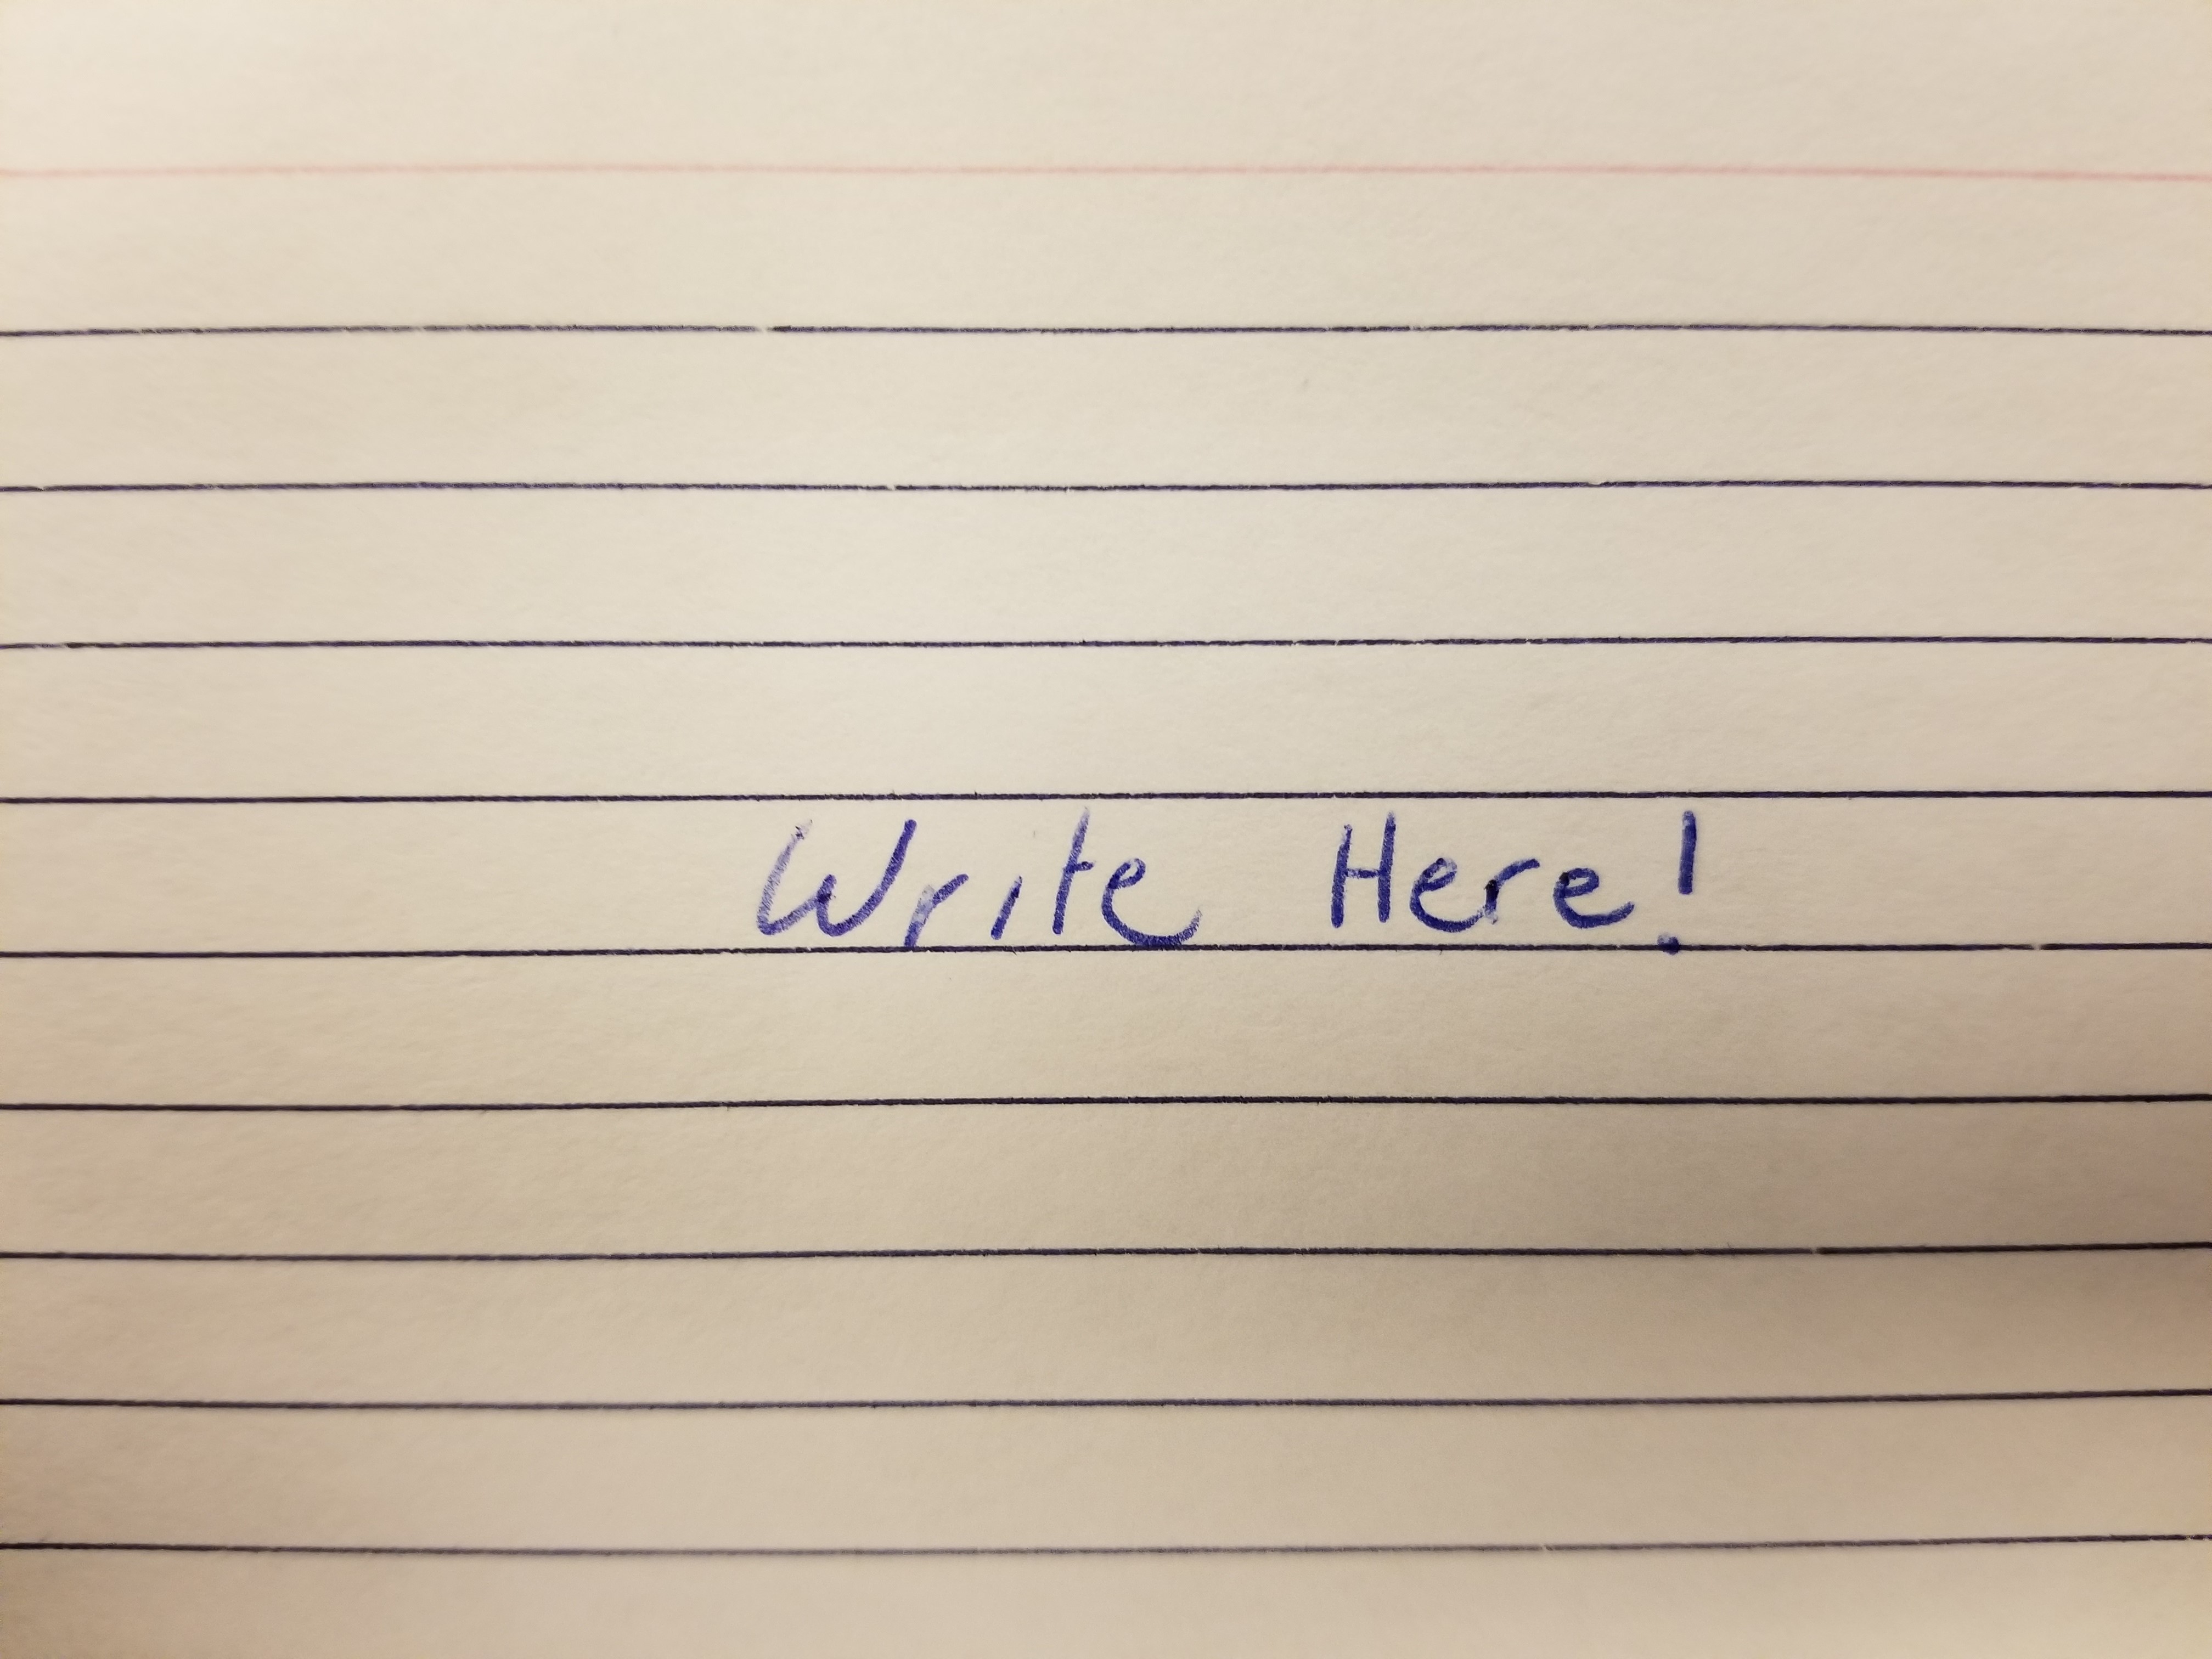 Write Here!